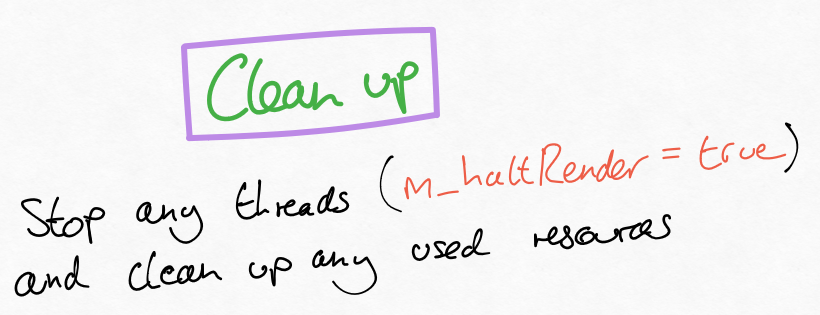 Clean up
Stop any threads (m_haltRender = true)
and clean up any used resources